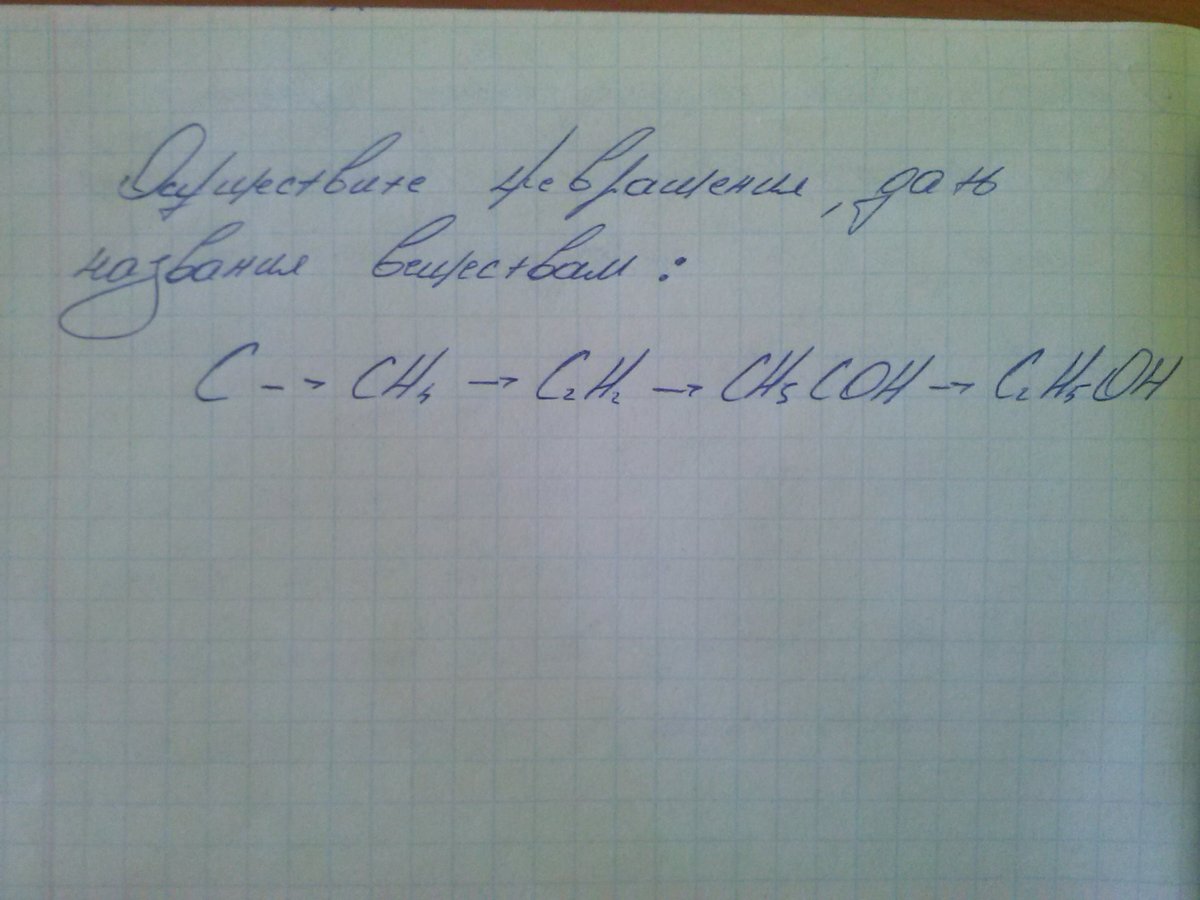 Осуществите превращения, дать
названия веществам:
C -→ CH₄ → C₂H₂ → CH₃COH → C₂H₅OH